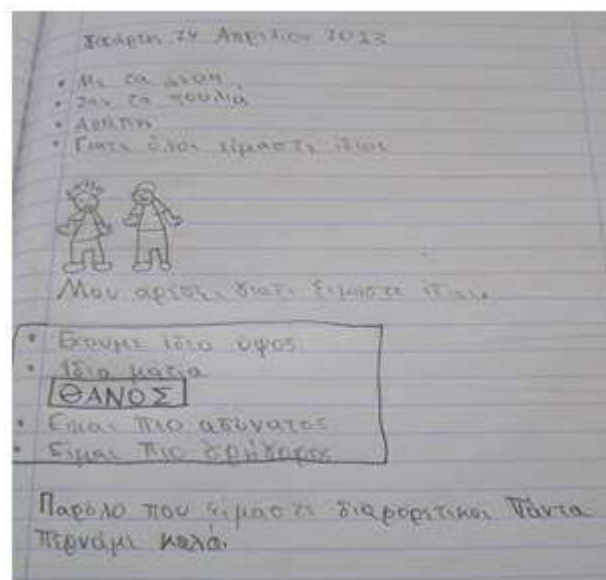 Τετάρτη 24 Απριλίου 2023
• Με τα
• Σαν τα πουλιά
• Αγάπη
• Γιατι όλοι είμαστε ίδιοι
Μου αρέσει γιατι είμαστε ίδιοι.
• Έχουμε ίδιο ύψος
• Ίδια μάτια
ΘΑΝΟΣ
• Είμαι πιο αδύνατος
• Είμαι πιο γρήγορος
Παρόλο που είμαστε διαφορετικοι Πάντα
περνάμε καλά.